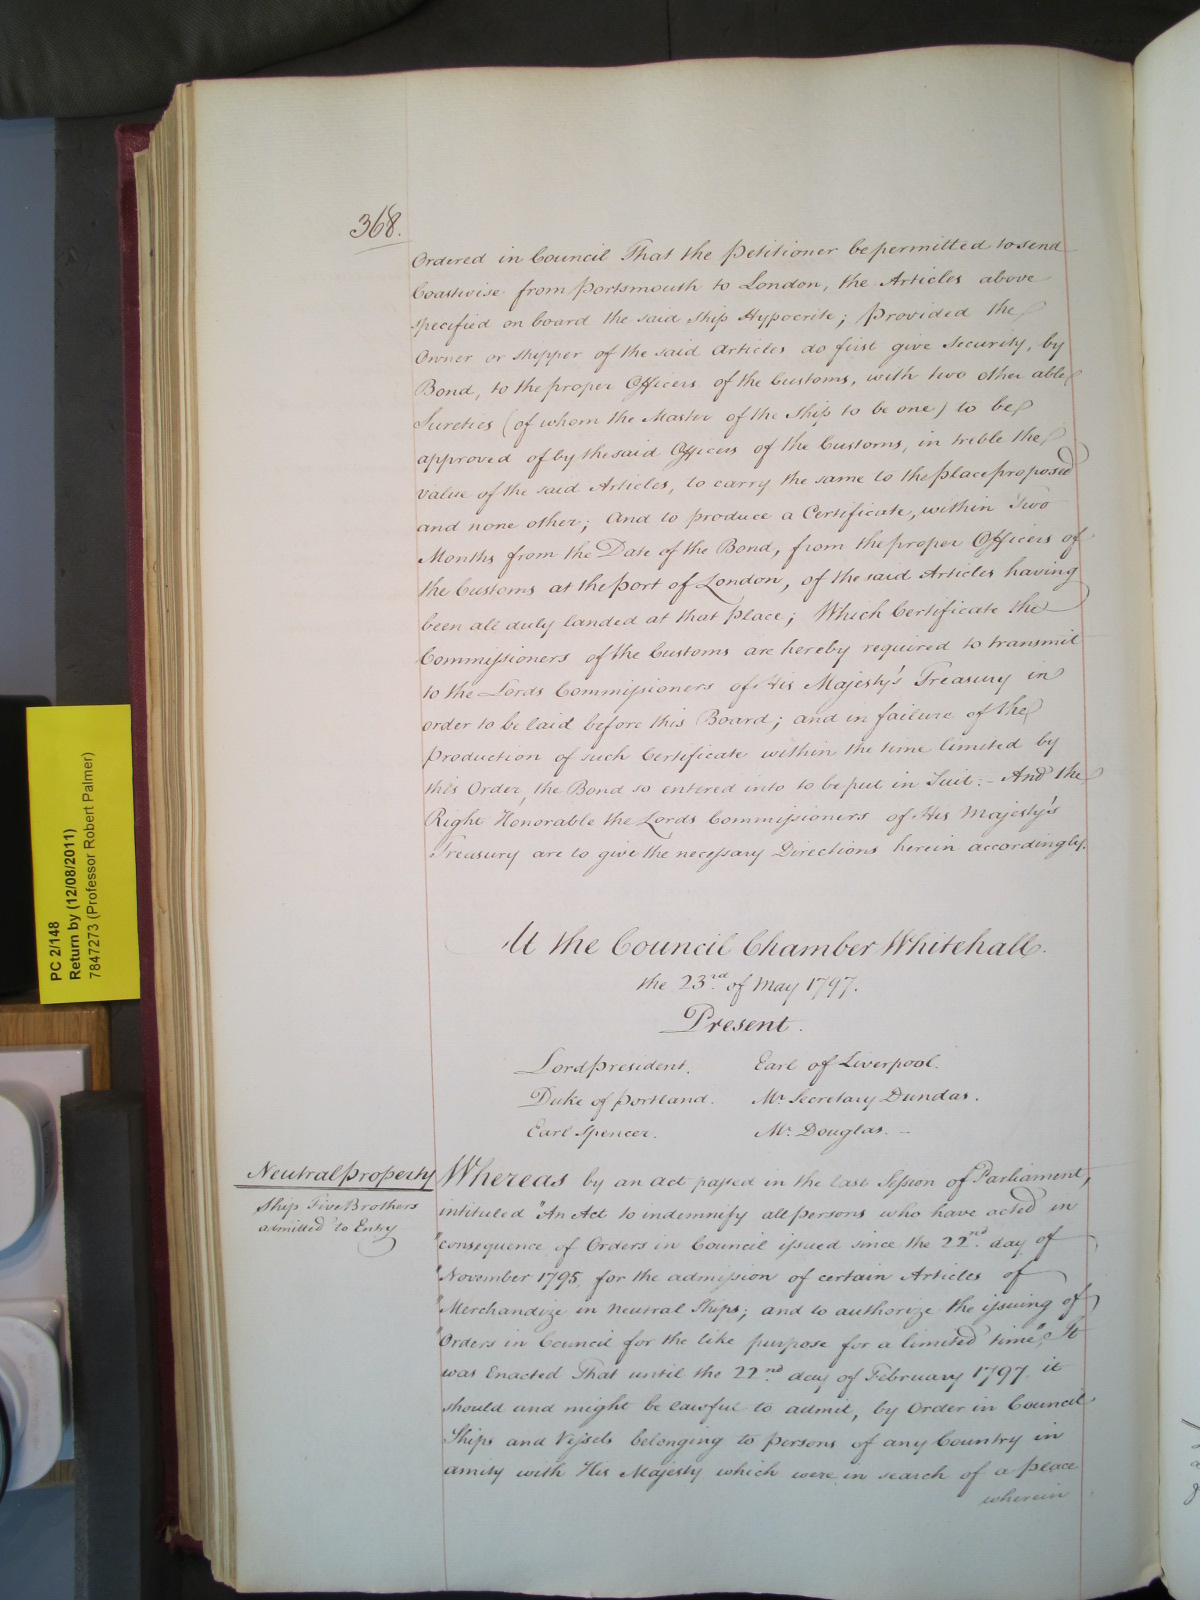 368.
Ordered in Council That the Petitioner be permitted to send
Coastwise from Portsmouth to London, the Articles above
specified on board the said Ship Hypocrite; provided the
Owner or shipper of the said Articles do first give Security, by
Bond, to the proper Officers of the Customs, with two other able
Sureties (of whom the Master of the Ship to be one) to be
approved of by the said Officers of the Customs, in treble the
value of the said Articles, to carry the same to the place proposed
and none other; And to produce a Certificate, within Two
Months from the Date of the Bond, from the proper Officers of
the Customs at the Port of London, of the said Articles having
been all duly landed at that Place; Which Certificate the
Commissioners of the Customs are hereby required to transmit
to the Lords Commissioners of His Majesty's Treasury in
order to be laid before this Board; and in failure of the
Production of such Certificate within the time limited by
this Order, the Bond so entered into to be put in Suit:- And the
Right Honorable the Lords Commissioners of His Majesty's
Treasury are to give the necessary Directions herein accordingly.
At the Council Chamber Whitehall.
the 23rd of May 1797.
Present.
Lord President. Earl of Liverpool.
Duke of Portland. Mr. Secretary Dundas.
Earl Spencer. Mr. Douglas. -
Neutral Property
Ship Five Brothers
admitted to Entry
Whereas by an act passed in the last Session of Parliament,
intituled "An Act to indemnify all persons who have acted in
"consequence of Orders in Council issued since the 22nd. day of
"November 1795, for the admission of certain Articles of
"Merchandize in neutral Ships; and to authorize the issuing of
"Orders in Council for the like purpose for a limited time"; It
was Enacted That until the 22nd. day of February 1797 it
should and might be lawful to admit, by Order in Council
Ships and Vessels belonging to persons of any Country in
amity with His Majesty which were in search of a place
wherein
PC 2/148
Return by (12/08/2011)
7847273 (Professor Robert Palmer)